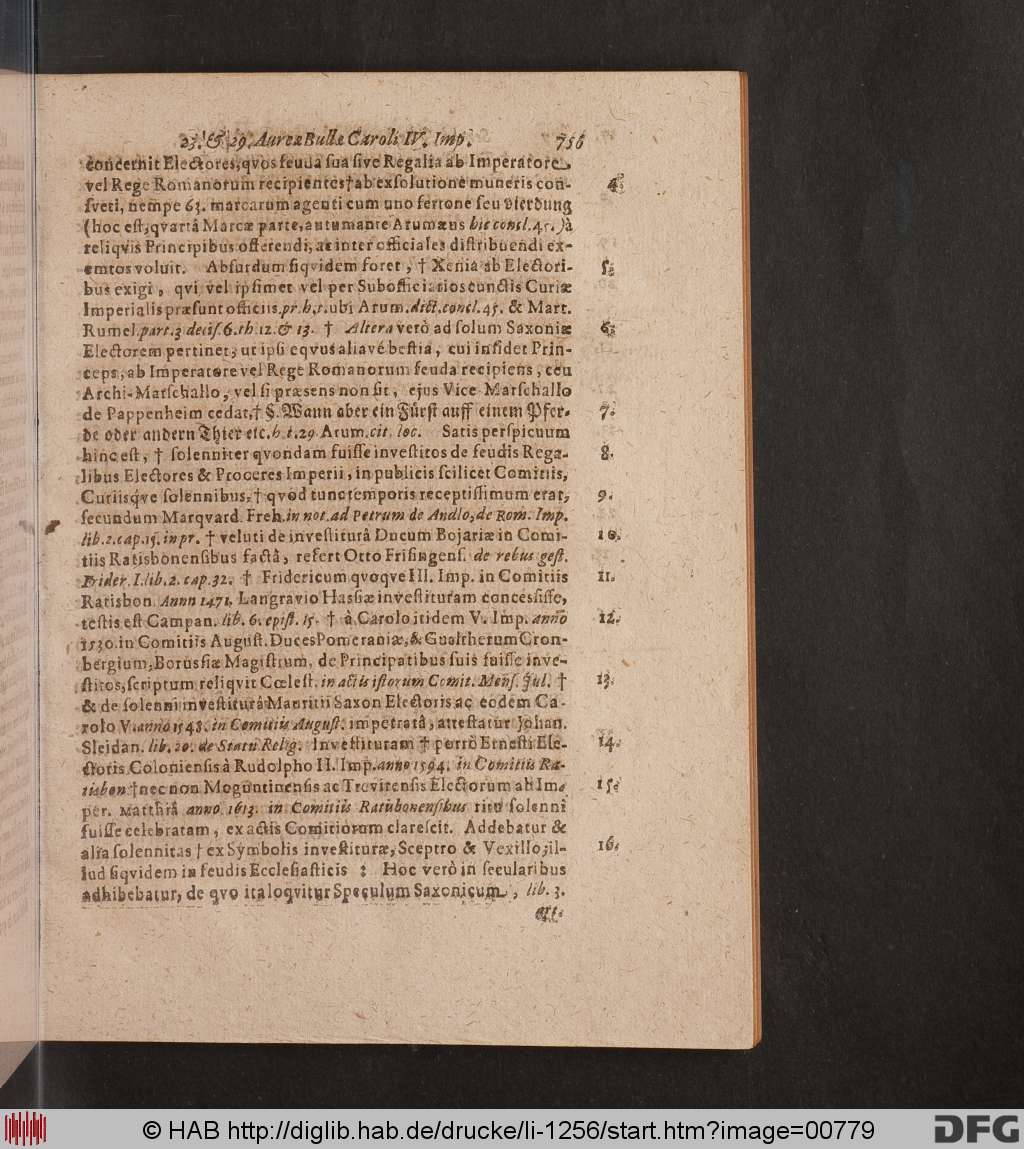 23. & 29. Aureæ Bullæ Caroli IV. Imp. 756
concernit Electores, qvos feuda sua sive Regalia ab Imperatore
vel Rege Romanorum recipientes † ab exsolutione muneris con- 4.
sveti, nempe 63. marcarum agenti cum uno fertone seu vierdung
(hoc est, qvartâ Marcæ parte, autumante Arumæus hic concl. 45.) à
reliqvis Principibus offerendi, ac inter officiales distribuendi ex-
emtos voluit. Absurdum siqvidem foret, † Xenia ab Electori- 5.
bus exigi, qvi vel ipsimet vel per Subofficiarios cunctis Curiæ
Imperialis præsunt officiis. pr. h. t. ubi Arum. dict. concl. 45. & Mart.
Rumel. part. 3 decis. 6. th 12. & 13. † Altera verò ad solum Saxoniæ 6.
Electorem pertinet, ut ipsi eqvus aliavé bestia, cui insidet Prin-
ceps, ab Imperatore vel Rege Romanorum feuda recipiens, ceu
Archi-Marschallo, vel si præsens non sit, ejus Vice-Marschallo
de Pappenheim cedat, † §. Wann aber ein Fürst auff einem Pfer- 7.
de oder andern Thier etc. h. t. 29 Arum. cit. loc. Satis perspicuum
hinc est, † solenniter qvondam fuisse investitos de feudis Rega- 8.
libus Electores & Proceres Imperii, in publicis scilicet Comitiis,
Curiisqve solennibus, † qvod tunc temporis receptissimum erat, 9.
secundum Marqvard. Freh. in not. ad Petrum de Andlo, de Rom. Imp.
lib. 2. cap. 15. in pr. † veluti de investiturâ Ducum Bojariæ in Comi- 10.
tiis Ratisbonensibus factâ, refert Otto Frisingens. de rebus gest.
Frider. I. lib. 2. cap. 32. † Fridericum qvoqve III. Imp. in Comitiis 11.
Ratisbon. Anno 1471. Langravio Hassiæ investituram concessisse,
testis est Campan. lib. 6. epist. 15. † à Carolo itidem V. Imp. anno 12.
1530. in Comitiis August. Duces Pomeraniæ, & Gualtherum Cron-
bergium, Borussiæ Magistrum, de Principatibus suis fuisse inve-
stitos, scriptum reliqvit Cœlest. in actis istorum Comit. Mens. Jul. † 13.
& de solenni investiturâ Mauritii Saxon Electoris ac eodem Ca-
rolo V. anno 1548. in Comitiis August. impetratâ, attestatur Johan.
Sleidan. lib. 20. de Statu Relig. Investituram † porrò Ernesti Ele- 14.
ctoris Coloniensis à Rudolpho II. Imp. anno 1594. in Comitiis Ra-
tisbon † nec non Moguntinensis ac Trevirensis Electorum ab Im- 15.
per. Matthiâ anno 1613. in Comitiis Ratisbonensibus ritu solenni
fuisse celebratam, ex actis Comitiorum clarescit. Addebatur &
alia solennitas † ex Symbolis investituræ, Sceptro & Vexillo, il- 16.
lud siqvidem in feudis Ecclesiasticis: Hoc verò in secularibus
adhibebatur, de qvo ita loqvitur Speculum Saxonicum, lib. 3.
art.
© HAB http://diglib.hab.de/drucke/li-1256/start.htm?image=00779
DFG